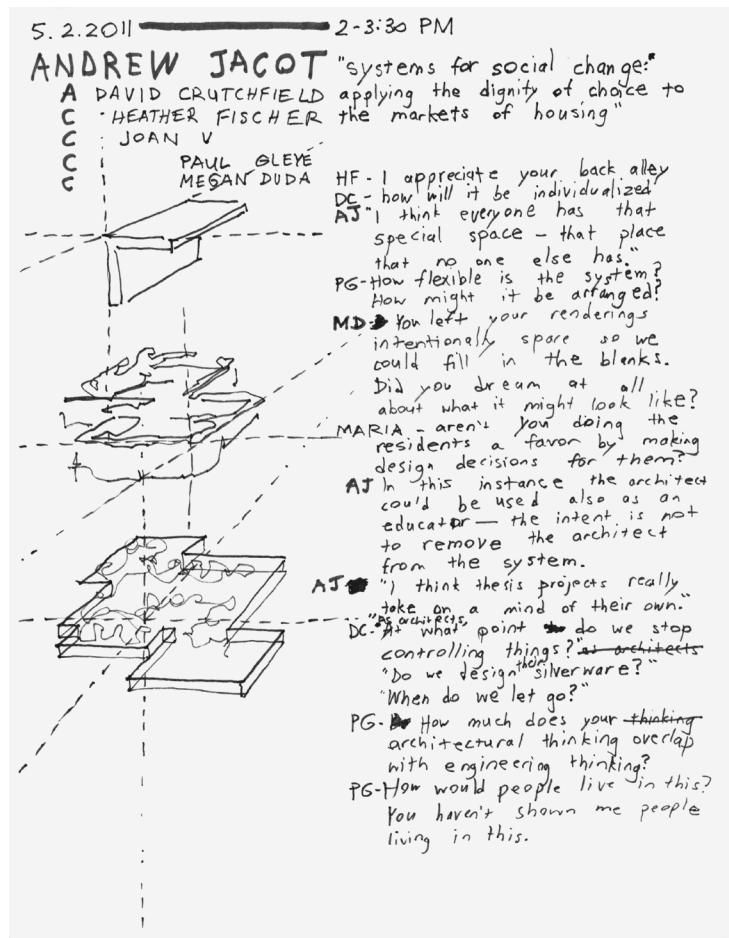 5.2.2011 2-3:30 PM
ANDREW JACOT
"systems for social change:"
applying the dignity of choice to
the markets of housing"
A DAVID CRUTCHFIELD
C HEATHER FISCHER
C JOAN V
C PAUL GLEYE
C MEGAN DUDA
HF - I appreciate your back alley
DC - how will it be individualized?
AJ "I think everyone has that
special space - that place
that no one else has."
PG - How flexible is the system?
How might it be arranged?
MD - You left your renderings
intentionally spare so we
could fill in the blanks.
Did you dream at all
about what it might look like?
MARIA - aren't you doing the
residents a favor by making
design decisions for them?
AJ In this instance the architect
could be used also as an
educator - the intent is not
to remove the architect
from the system.
AJ "I think thesis projects really
take on a mind of their own."
"As architects,
DC - At what point do we stop
controlling things?" as architects
"Do we design their silverware?"
"When do we let go?"
PG - How much does your thinking
architectural thinking overlap
with engineering thinking?
PG - How would people live in this?
You haven't shown me people
living in this.